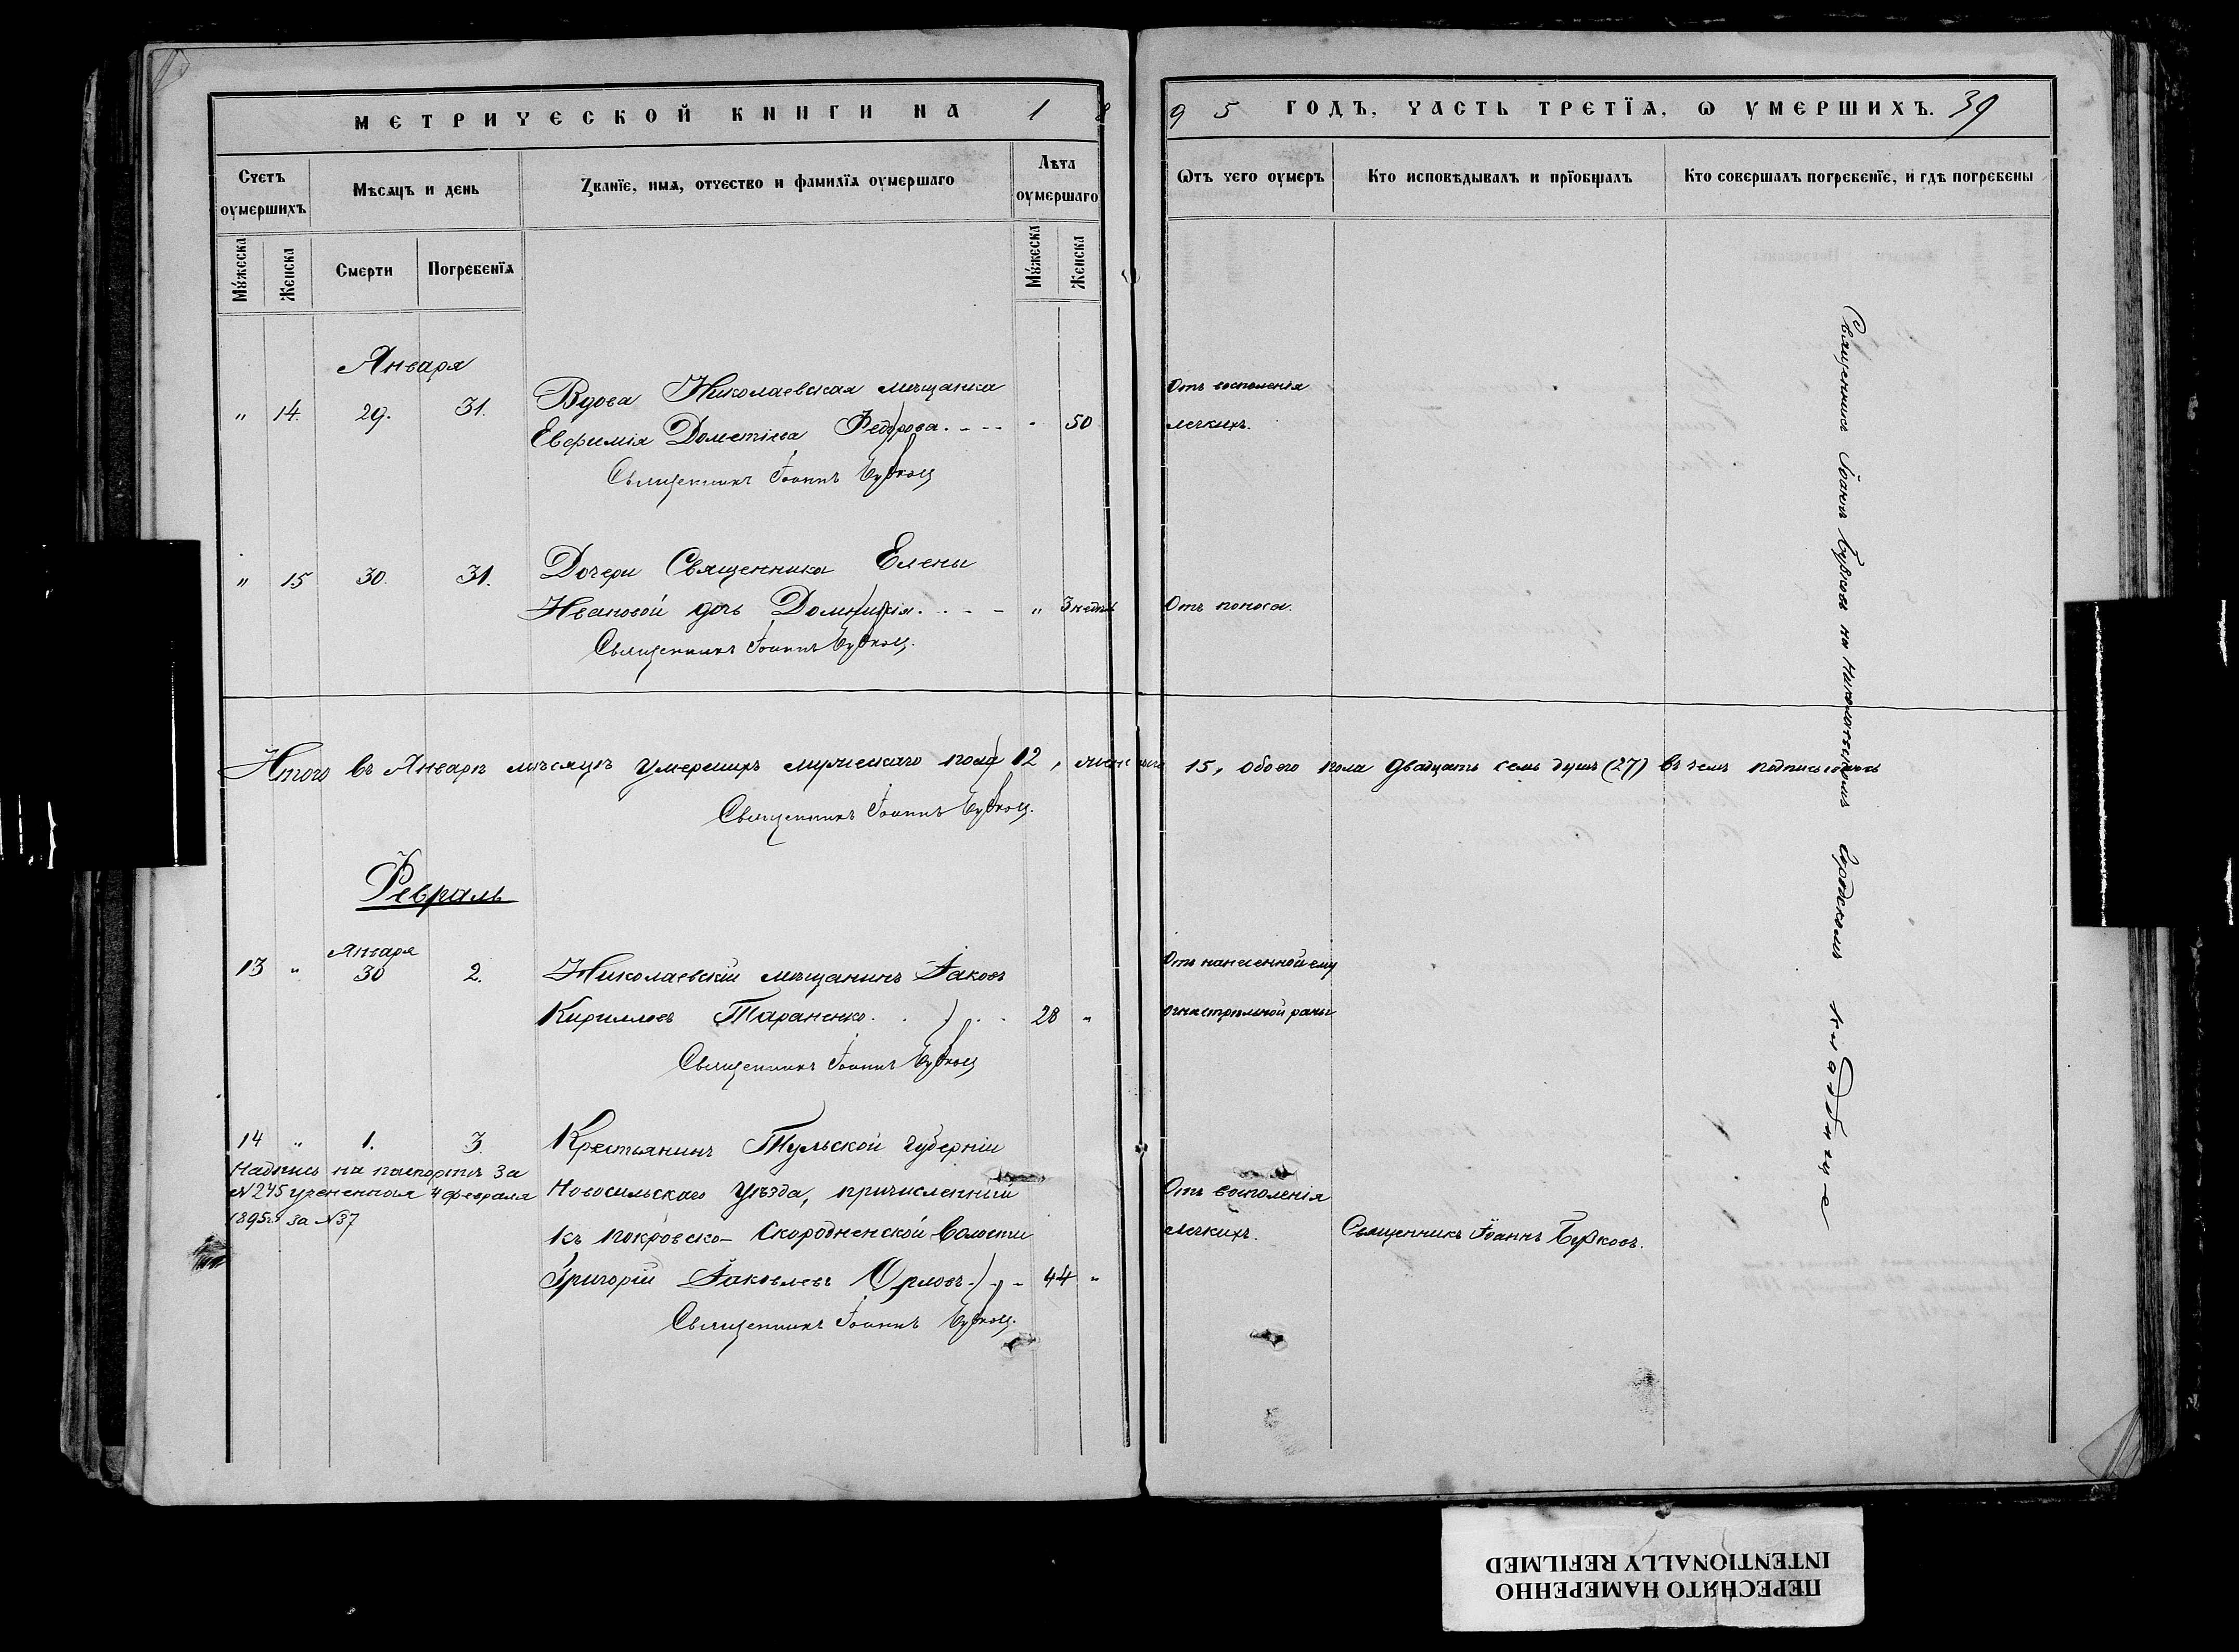 МЕТРИЧЕСКОЙ КНИГИ НА 1895 ГОДЪ, ЧАСТЬ ТРЕТІЯ, Ѡ УМЕРШИХЪ. 39
Счетъ оумершихъ
Мѣсяцъ и день
Званіе, имя, отчество и фамилія оумершаго
Лѣта оумершаго
Ѡтъ чего оумеръ
Кто исповѣдывалъ и пріобщалъ
Кто совершалъ погребеніе, и гдѣ погребены
Мужеска
Женска
Смерти
Погребенія
Мужеска
Женска
Января
" 14. 29. 31. Вдова Николаевская мѣщанка Отъ воспаленія
Евфимія Дометіева Федорова. - - - - 50 легкихъ.
Священникъ Іоаннъ Бурковъ
" 15 30. 31. Дочери Священника Елены
Ивановой дочь Домникія. - - - " 3 недѣл Отъ поноса.
Священникъ Іоаннъ Бурковъ.
Итого въ Январѣ мѣсяцѣ умершихъ мужескаго пола 12, женскаго 15, обоего пола двадцать семь душъ (27) въ чемъ подписываюсь
Священникъ Іоаннъ Бурковъ.
Февраль
Января
13 " 30 2. Николаевскій мѣщанинъ Іаковъ Отъ нанесенной ему
Кирилловъ Тараненко. . . . 28 " огнестрѣльной раны
Священникъ Іоаннъ Бурковъ
14 " 1. 3. Крестьянинъ Тульской губерніи
Надпись на паспортѣ за
№ 245 учененная 4 февраля
1895 г. за № 37
Новосильскаго уѣзда, причисленный Отъ воспаленія
къ Покровско-Скородненской волости легкихъ. Священникъ Іоаннъ Бурковъ.
Григорій Іаковлевъ Орловъ. - - 44 "
Священникъ Іоаннъ Бурковъ.
Священникъ Іоаннъ Бурковъ на Николаевскомъ городскомъ кладбищѣ
ПЕРЕСНЯТО НАМЕРЕННО
INTENTIONALLY REFILMED